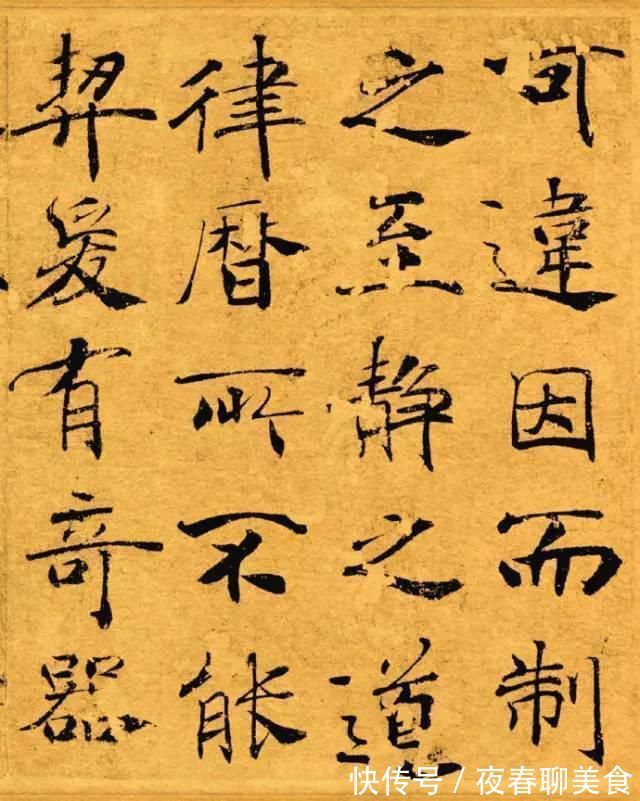 可違因而制
之至靜之道
律曆所不能
契爰有奇器
快传号/夜春聊美食